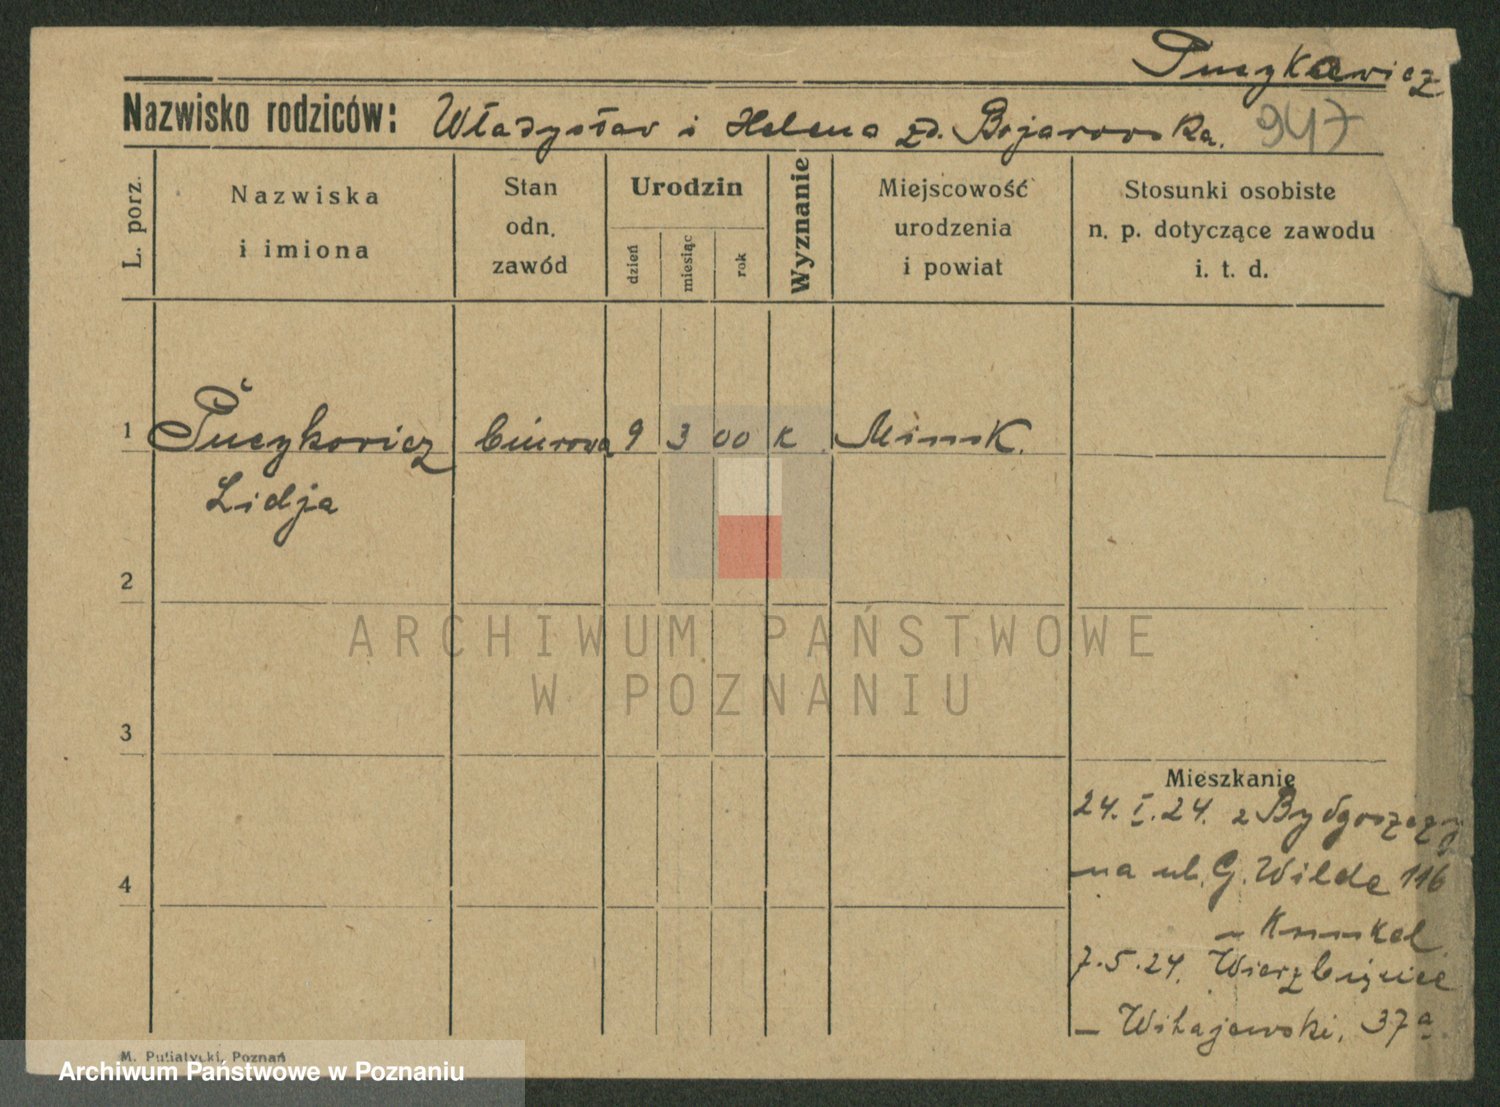 Pucykowicz
Nazwisko rodziców: Władysław i Helena zd. Bojarowska. 947
L. porz.
Nazwiska
i imiona
Stan
odn.
zawód
Urodzin
dzień
miesiąc
rok
Wyznanie
Miejscowość
urodzenia
i powiat
Stosunki osobiste
n. p. dotyczące zawodu
i. t. d.
1 Pucykowicz biurowa 9 3 00 K. Minsk.
Lidja
2
ARCHIWUM PAŃSTWOWE
W POZNANIU
3
Mieszkanie
24. I. 24. z Bydgoszczy
4
na ul. G. Wilda 116
7.5.24. Wierzbięcice
– Witajewski, 37a
M. Putiatycki, Poznań
Archiwum Państwowe w Poznaniu